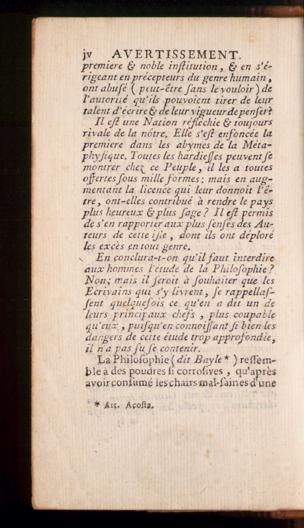 jv AVERTISSEMENT.
premiere & noble inſtitution, & en s'é-
rigeant en précepteurs du genre humain,
ont abuſé ( peut-être ſans le vouloir ) de
l'autorité qu'ils pouvoient tirer de leur
talent d'écrire & de leur vigueur de penſer?
Il eſt une Nation réfléchie & toujours
rivale de la nôtre. Elle s'eſt enfoncée la
premiere dans les abymes de la Méta-
phyſique. Toutes les hardieſſes peuvent ſe
montrer chez ce Peuple, il les a toutes
offertes ſous mille formes; mais en aug-
mentant la licence qui leur donnoit l'ê-
tre, ont-elles contribué à rendre le pays
plus heureux & plus ſage? Il eſt permis
de s'en rapporter aux plus ſenſés des Au-
teurs de cette iſle, dont ils ont déploré
les excès en tout genre.
En conclura-t-on qu'il faut interdire
aux hommes l'étude de la Philoſophie?
Non; mais il ſeroit à ſouhaiter que les
Ecrivains qui s'y livrent, ſe rappellaſ-
ſent quelquefois ce qu'en a dit un de
leurs principaux chefs, plus coupable
qu'eux, puiſqu'en connoiſſant ſi bien les
dangers de cette étude trop approfondie,
il n'a pas ſu ſe contenir.
La Philoſophie ( dit Bayle * ) reſſem-
ble à des poudres ſi corroſives, qu'après
avoir conſumé les chairs mal-ſaines d'une
* Art. Acoſta.